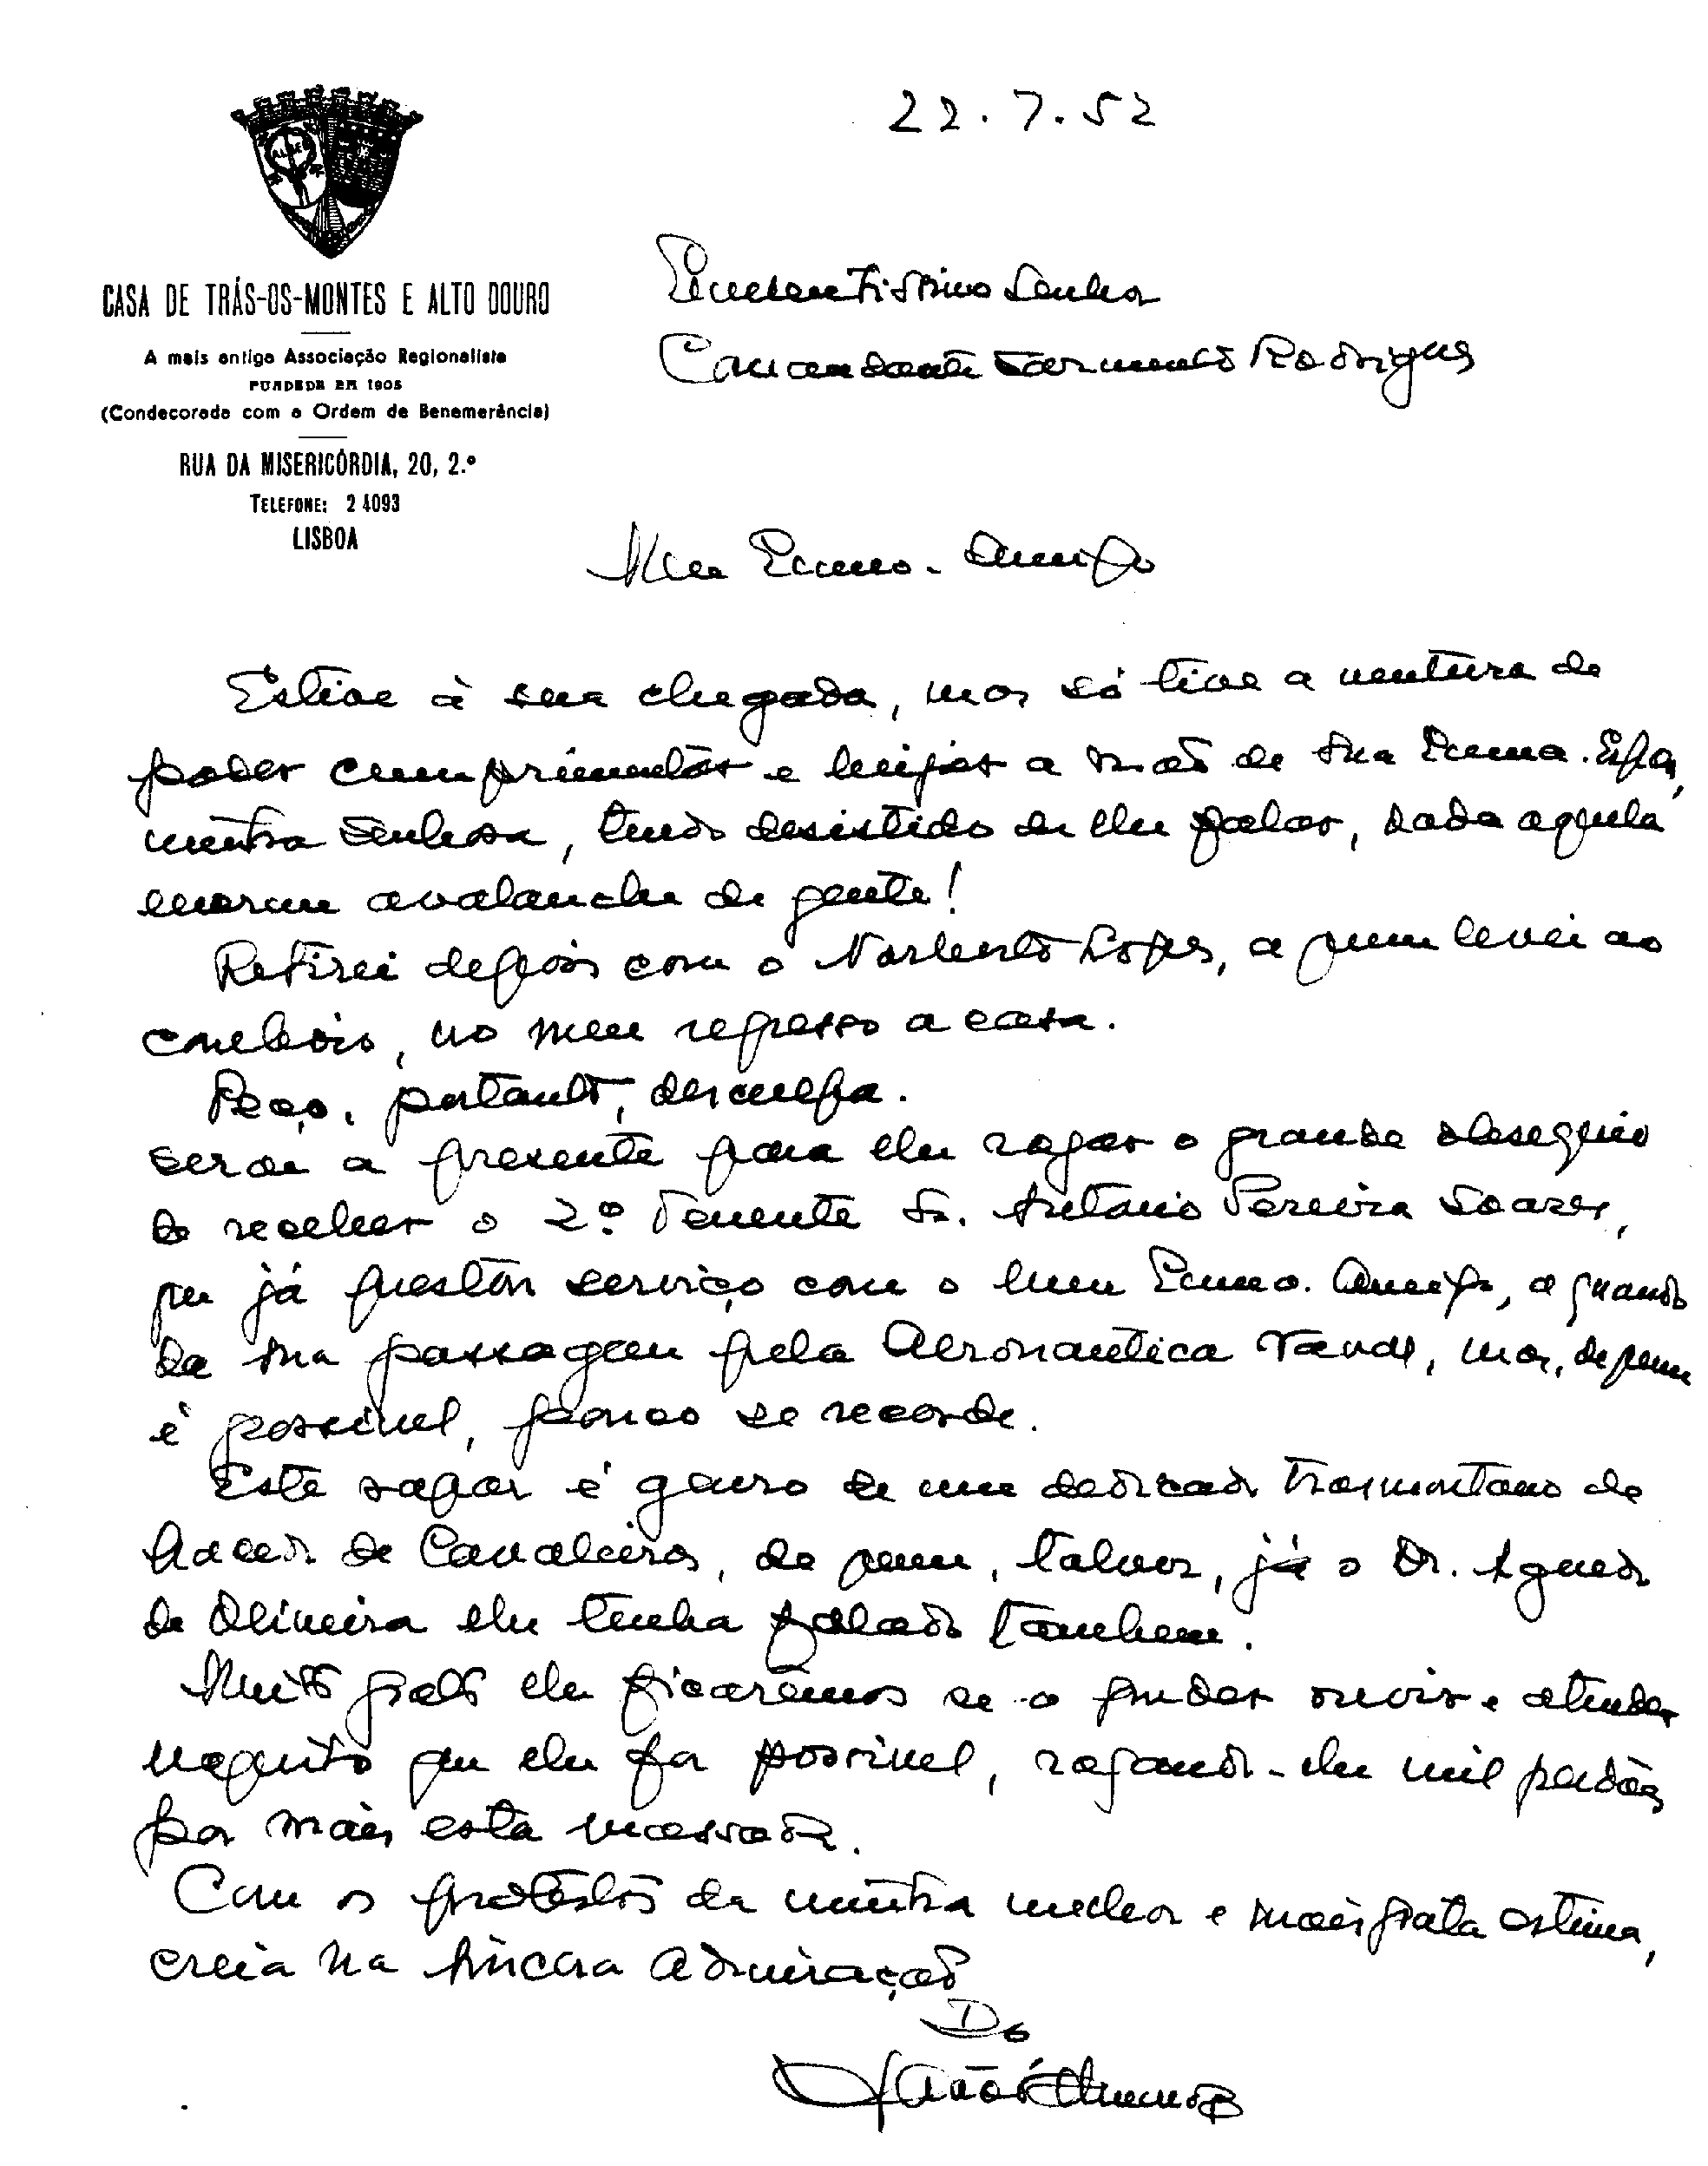 22.7.52
CASA DE TRÁS-OS-MONTES E ALTO DOURO
A mais antiga Associação Regionalista
FUNDADA EM 1905
(Condecorada com a Ordem de Benemerência)
RUA DA MISERICÓRDIA, 20, 2.º
TELEFONE: 2 4093
LISBOA
Excelentissimo Senhor
Comandante Sarmento Rodrigues
Meu Exmo. Amigo
Estive à sua chegada, mas só tive a ventura de
poder cumprimentar e beijar a mão de Sua Exma. Espoa,
minha Senhora, tendo desistido de lhe falar, dada aquela
enorme avalanche de gente!
Retirei depois com o Norberto Lopes, a quem levei ao
comboio, no meu regresso a casa.
Peço, portanto, desculpa.
Serve a presente para lhe rogar o grande obsequio
de receber o 2º Tenente Sr. António Pereira Soares,
que já prestou serviço com o meu Exmo. Amigo, a quando
da sua passagem pela Aeronautica Naval, mas, de quem
é possivel, pouco se recorde.
Este rapaz é genro de um dedicado trasmontano de
Macedo de Cavaleiros, de quem, talvez, já o Dr. Aguedo
de Oliveira lhe tenha falado tambem.
Muito grato lhe ficarêmos se o puder ouvir e atender
naquilo que lhe fôr possivel, rogando-lhe mil perdões
por mais esta massada.
Com os protestos da minha melhor e mais grata estima,
creia na sincera admiração
Do